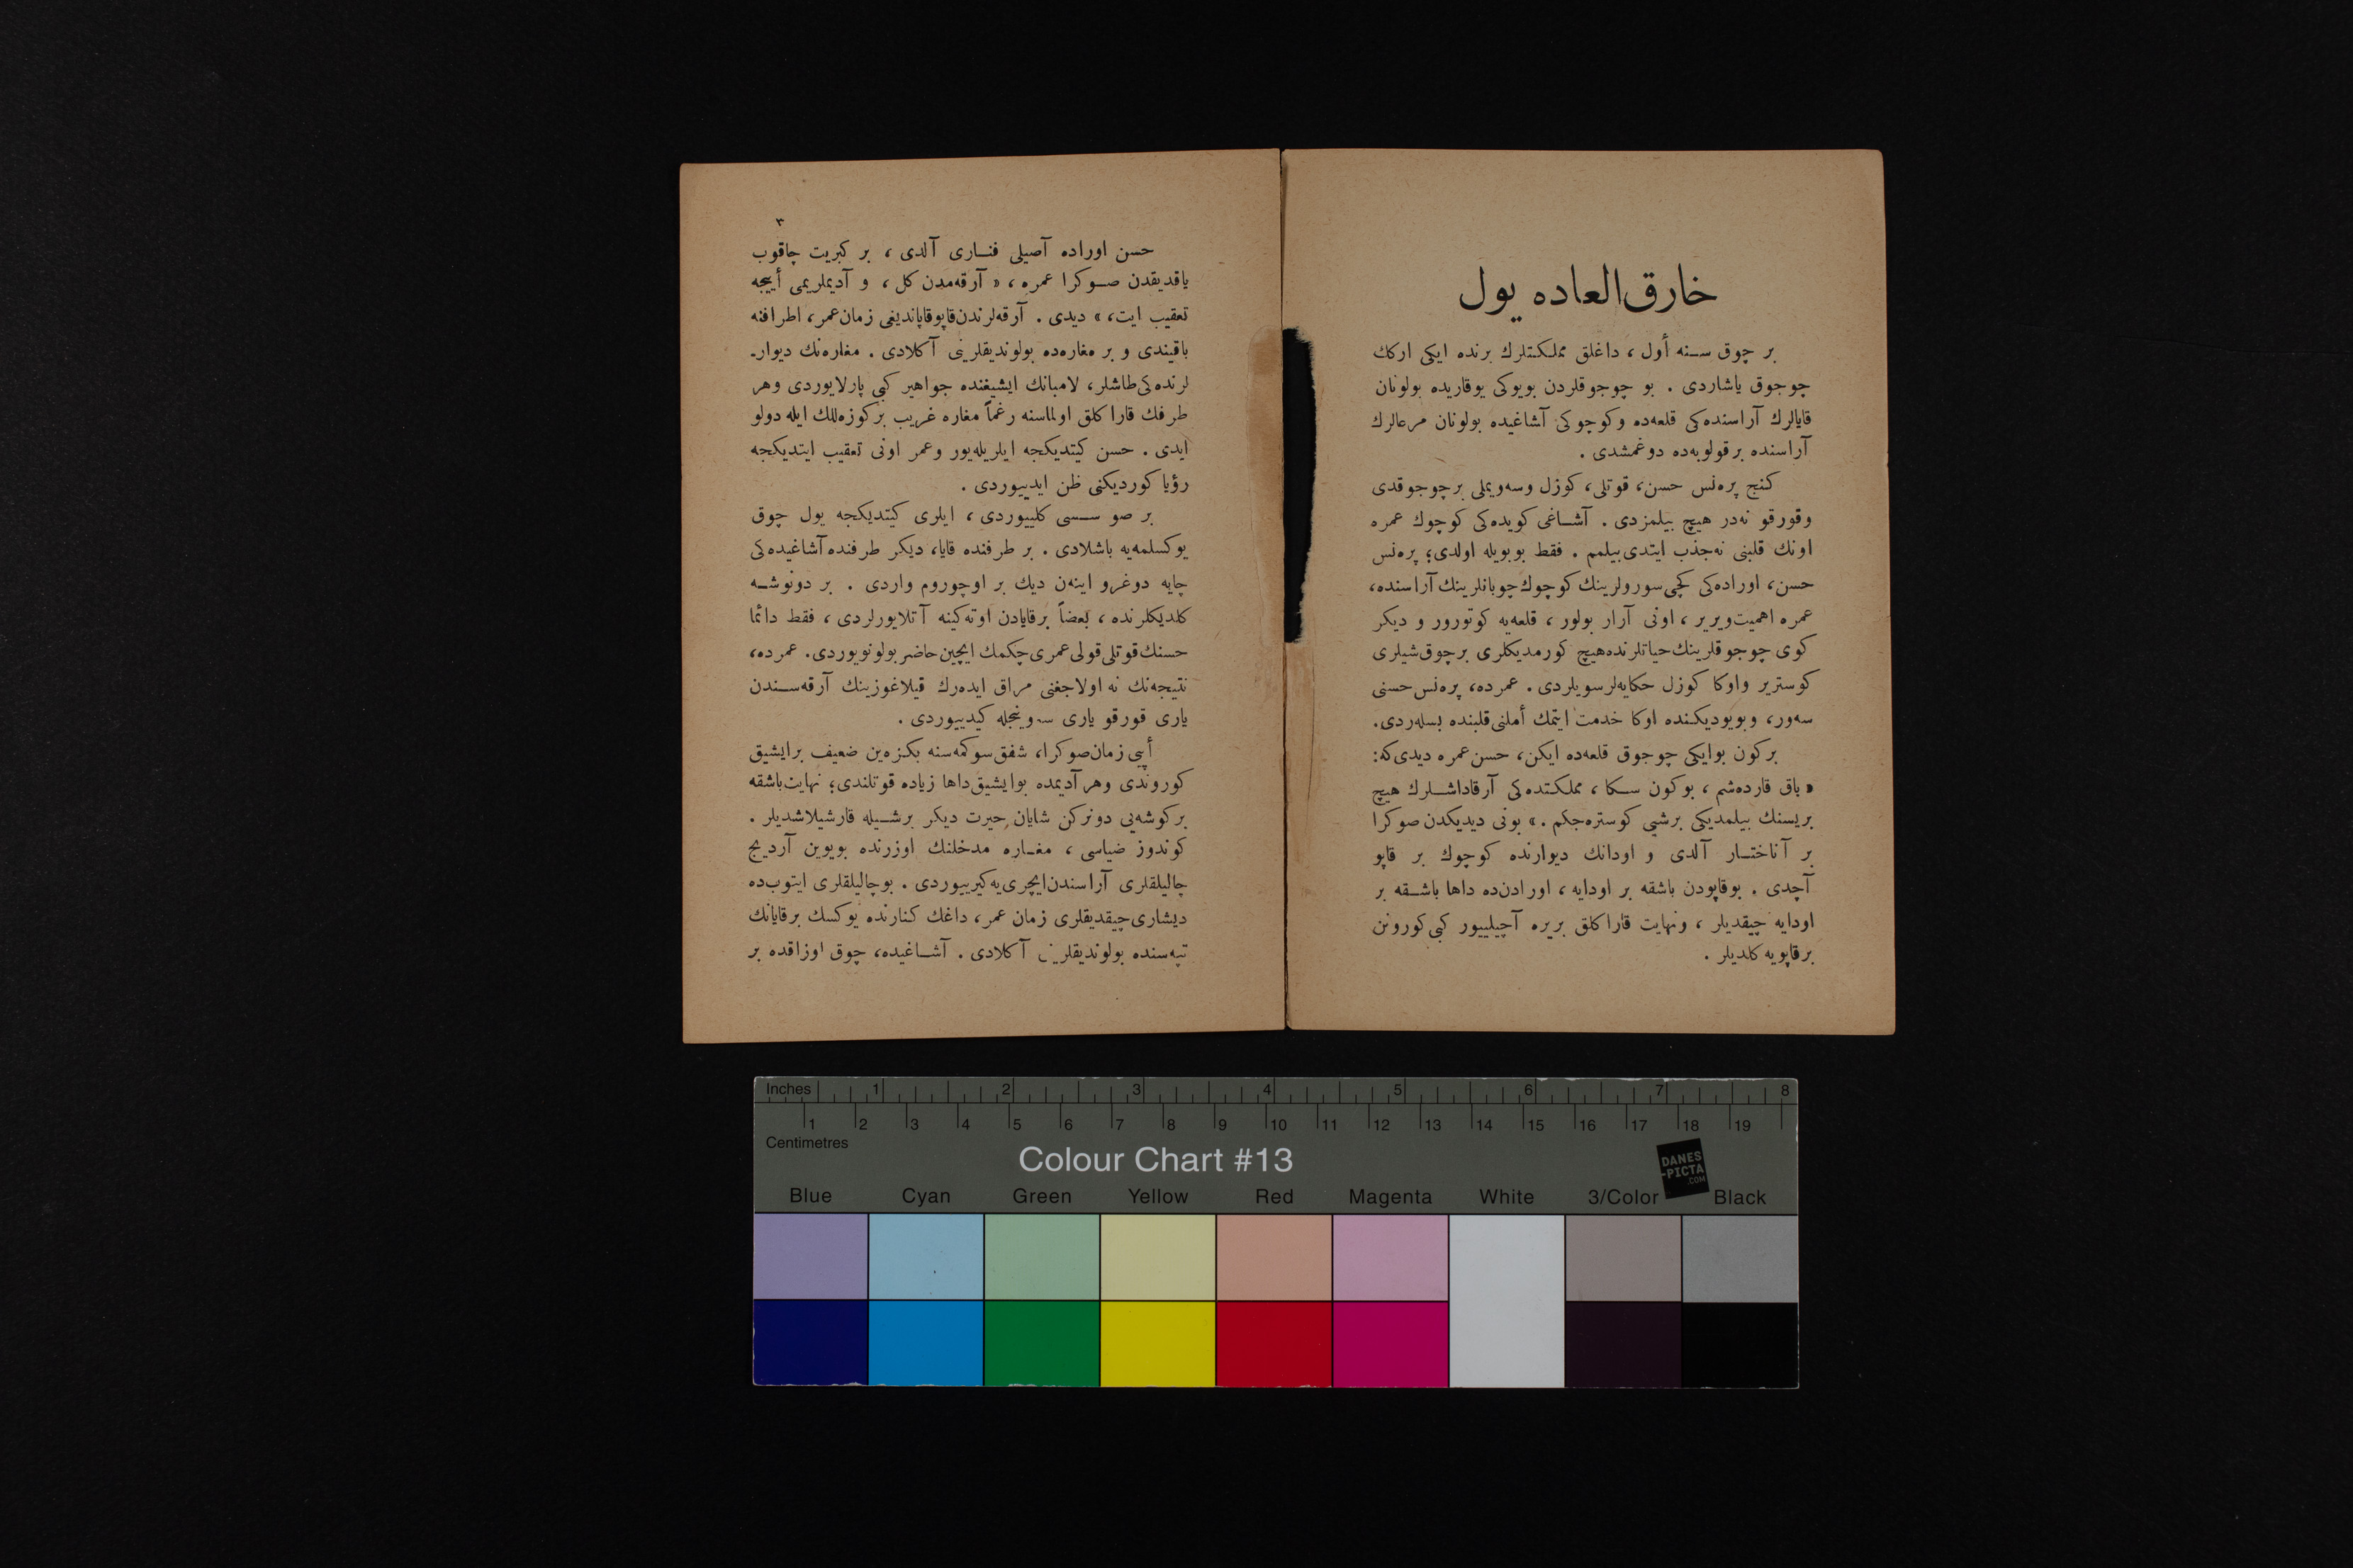 خارق‌العاده یول
بر چوق سـنه أول ، داغلق مملـکـتلرك برنده ایکی ارکك
چوجوق یاشاردی . بو چوجوقلردن بویوکی یوقاریده بولونان
قایالرك آراسنده‌کی قلعه‌ده وکوچوکی آشاغیده بولونان مرعالرك
آراسنده برقولوبه‌ده دوغمشدی .
کنج پره‌نس حسن، قوتلی، کوزل وسه‌ویملی برچوجوقدی
وقورقو نه‌در هیچ بیلمزدی . آشـاغی کویده‌کی کوچوك عمره
اونك قلبنی نه‌جذب ایتدی‌بیلمم . فقط بوبویله اولدی؛ پره‌نس
حسن، اوراده‌کی کچی‌سورولرینك کوچوك‌چوبانلرینك آراسنده،
عمره اهمیت‌ویریر ، اونی آرار بولور ، قلعه‌یه کوتورور و دیکر
کوی چوجوقلرینك‌حیاتلرنده‌هیچ کورمدیکلری برچوق‌شیلری
کوستریر واوکا کوزل حکایه‌لرسویلردی . عمرده، پره‌نس‌حسنی
سه‌ور، وبویودیکـنده اوکا خدمت ایتمك أملنی‌قلبنده بسله‌ردی.
برکون بوایکی چوجوق قلعه‌ده ایکن، حسن‌عمره دیدی‌که:
« باق قارده‌شم ، بوکون سـکا ، مملکـتده‌کی آرقاداشـلرك هیچ
بریسنك بیلمدیکی برشیی کوستره‌جکم .» بونی دیدیکدن صوکرا
بر آناختـار آلدی و اودانك دیوارنده کوچوك بر قاپو
آچدی . بوقاپودن باشقه بر اودایه ، اورادن‌ده داها باشـقه بر
اودایه چیقدیلر ، ونهایت قاراکلق بریره آچیلییور کبی‌کورونن
برقاپویه کلدیلر .
٣
حسن اوراده آصیلی فنـاری آلدی ، بر کبریت چاقوب
یاقدیقدن صـوکرا عمره ، « آرقه‌مدن کل ، و آدیملریمی أییجه
تعقیب ایت، » دیدی . آرقه‌لرندن‌قاپوقاپاندیغی زمان‌عمر، اطرافنه
باقیندی و بر مغاره‌ده بولوندیقلرینی آکلادی . مغاره‌نك دیوار-
لرنده‌کی‌طاشلر، لامبانك ایشیغنده جواهیر کبی پارلایوردی وهر
طرفك قاراکلق اولماسنه رغماً مغاره غریب برکوزه‌للك ایله دولو
ایدی . حسن کیتدیکجه ایلریله‌یور وعمر اونی تعقیب ایتدیکجه
رؤیا کوردیکنی ظن ایدییوردی .
بر صو سـسی کلییوردی ، ایلری کیتدیکجه یول چوق
یوکسلمه‌یه باشلادی . بر طرفنده قایا، دیکر طرفنده آشاغیده‌کی
چایه دوغرو اینه‌ن دیك بر اوچوروم واردی . بر دونوشـه
کلدیکلرنده ، بعضاً برقایادن اوته‌کینه آتلایورلردی ، فقط دائما
حسنك‌قوتلی‌قولی‌عمری‌چکمك ایچین‌حاضر بولونویوردی. عمرده،
نتیجه‌نك نه اولاجغنی مراق ایده‌رك قیلاغوزینك آرقه‌سـندن
یاری قورقو یاری سه‌وینجله کیدییوردی .
أپی زمان‌صوکرا، شفق‌سوکمه‌سنه بکـزه‌ین ضعیف برایشیق
کوروندی وهرآدیمده بوایشیق‌داها زیاده قوتلندی؛ نهایت‌باشقه
برکوشه‌یی دونرکن شایان حیرت دیکر برشـیله قارشیلاشدیلر .
کوندوز ضیاسی ، مغـاره مدخلنك اوزرنده بویوین آردیج
چالیلقلری آراسندن‌ایچری‌یه‌کیرییوردی . بوچالیلقلری ایتوب‌ده
دیشاری‌چیقدیقلری زمان عمر، داغك کنارنده یوکسك برقایانك
تپه‌سنده بولوندیقلرینی آکلادی . آشـاغیده، چوق اوزاقده بر
Inches 1 2 3 4 5 6 7 8
1 2 3 4 5 6 7 8 9 10 11 12 13 14 15 16 17 18 19
Centimetres
Colour Chart #13
DANES
-PICTA
.COM
Blue Cyan Green Yellow Red Magenta White 3/Color Black